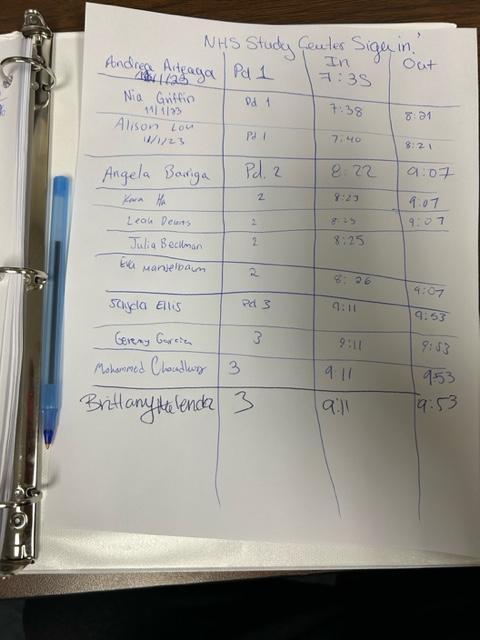 NHS Study Center Sign in!
In Out
Andrea Arteaga Pd 1 7:35
11/1/23
Nia Griffin Pd 1 7:38 8:21
11/1/23
Alison Lou Pd 1 7:40 8:21
11/1/23
Angela Barriga Pd. 2 8:22 9:07
Kara Ha 2 8:23 9:07
Leah 2 8:23 9:07
Julia Beckman 2 8:25
Eva Mantelbaum 2 8:26 9:07
Ellis Pd 3 9:11 9:53
Geremy Garcia 3 9:11 9:53
Mohammed Choudhury 3 9:11 953
Brittany 3 9:11 9:53